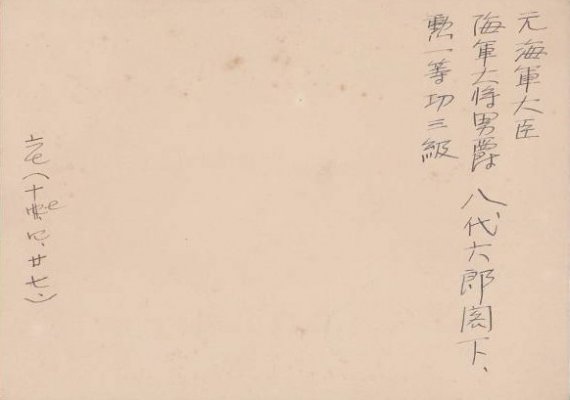 元海軍大臣
海軍大将男爵 八代六郎閣下、
勲一等功三級
(十四、四、廿七、)